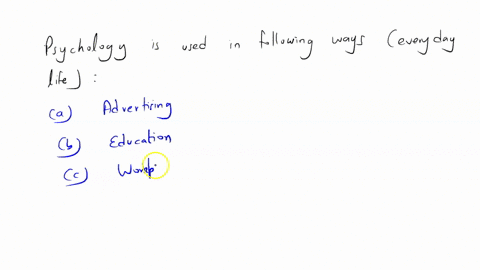 Psychology is used in following ways (everyday
life) :
(a) Advertising
(b) Education
(c)